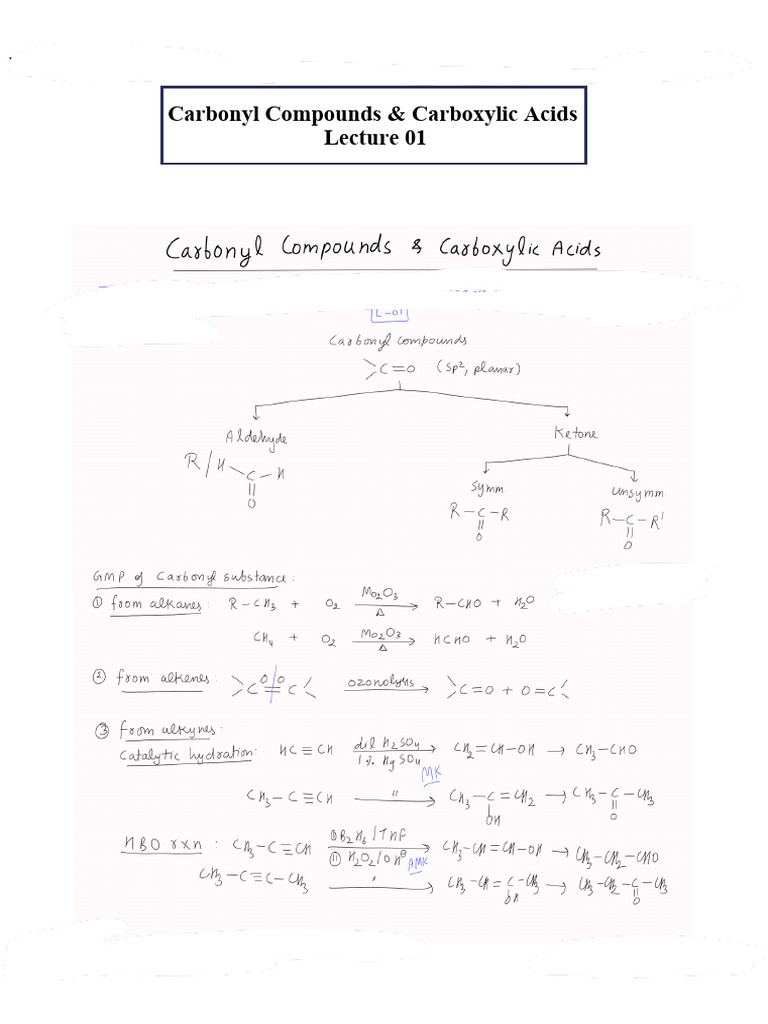 Carbonyl Compounds & Carboxylic Acids
Lecture 01
Carbonyl Compounds & Carboxylic Acids
L-01
Carbonyl compounds
>C=O (sp², planar)
Aldehyde
Ketone
R/H-C-H
||
O
symm
unsymm
R-C-R
||
O
R-C-R'
||
O
GMP of Carbonyl substance:
① from alkanes: R-CH₃ + O₂ Mo₂O₃ Δ → R-CHO + H₂O
CH₄ + O₂ Mo₂O₃ Δ → HCHO + H₂O
② from alkenes: >C=C< O O ozonolysis → >C=O + O=C<
③ from alkynes:
Catalytic hydration: HC≡CH dil H₂SO₄ 1% HgSO₄ → CH₂=CH-OH → CH₃-CHO
MK
CH₃-C≡CH " → CH₃-C=CH₂ → CH₃-C-CH₃
OH || O
HBO rxn: CH₃-C≡CH ① B₂H₆/THF ② H₂O₂/OH⊖ → CH₃-CH=CH-OH → CH₃-CH₂-CHO
AMK
CH₃-C≡C-CH₃ " → CH₃-CH=C-CH₃ → CH₃-CH₂-C-CH₃
OH || O